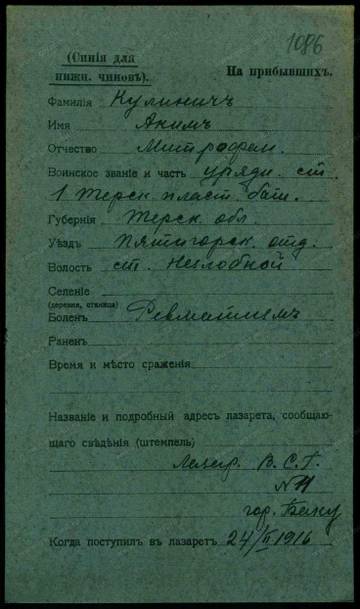 1086
(Синія для
нижн. чиновъ).
На прибывшихъ.
Фамилія Кулиничъ
Имя Акимъ
Отчество Митрофан.
Воинское званіе и часть урядн. ст.
1 Терск. пласт. бат.
Губернія Терск. обл.
Уѣздъ Пятигорск. отд.
Волость ст. Незлобной
Селеніе
(деревня, станица)
Боленъ Ревматизмъ
Раненъ
Время и мѣсто сраженія
Названіе и подробный адресъ лазарета, сообщаю-
щаго свѣдѣнія (штемпель)
Лазар. В. С. Г.
№ 11
гор. Баку
Когда поступилъ въ лазаретъ 24/II 1916